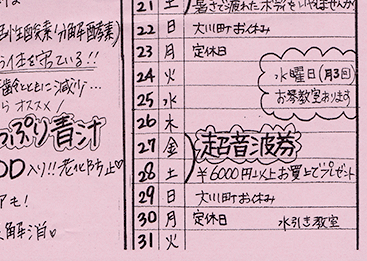 活性酵素(分解酵素)
を守っている!!
齢とともに減少…
らオススメ/
っぷり青汁
OD入り!!老化防止♡
アも!
解消♡
21 土 暑さで疲れたボディをいやしませんか
22 日 大川町お休み
23 月 定休日
24 火
25 水
水曜日(月3回)
お琴教室あります
26 木
27 金 超音波券
28 土 ¥6000円以上お買上でプレゼント
29 日 大川町お休み
30 月 定休日 水引き教室
31 火